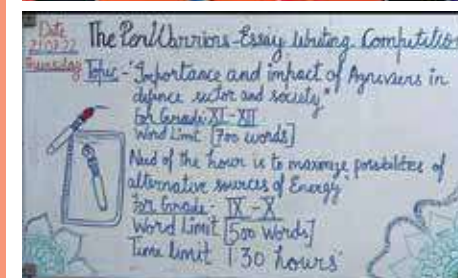 Date
21.07.22
Thursday
The Pen Warriors-Essay Writing Competition
Topic - "Importance and impact of Agniveers in
defence sector and society"
For Grade: XI - XII
Word Limit [700 words]
Need of the hour is to maximize possibilities of
alternative sources of Energy
For Grade:- IX - X
Word Limit [500 words]
Time limit 1 30 hours